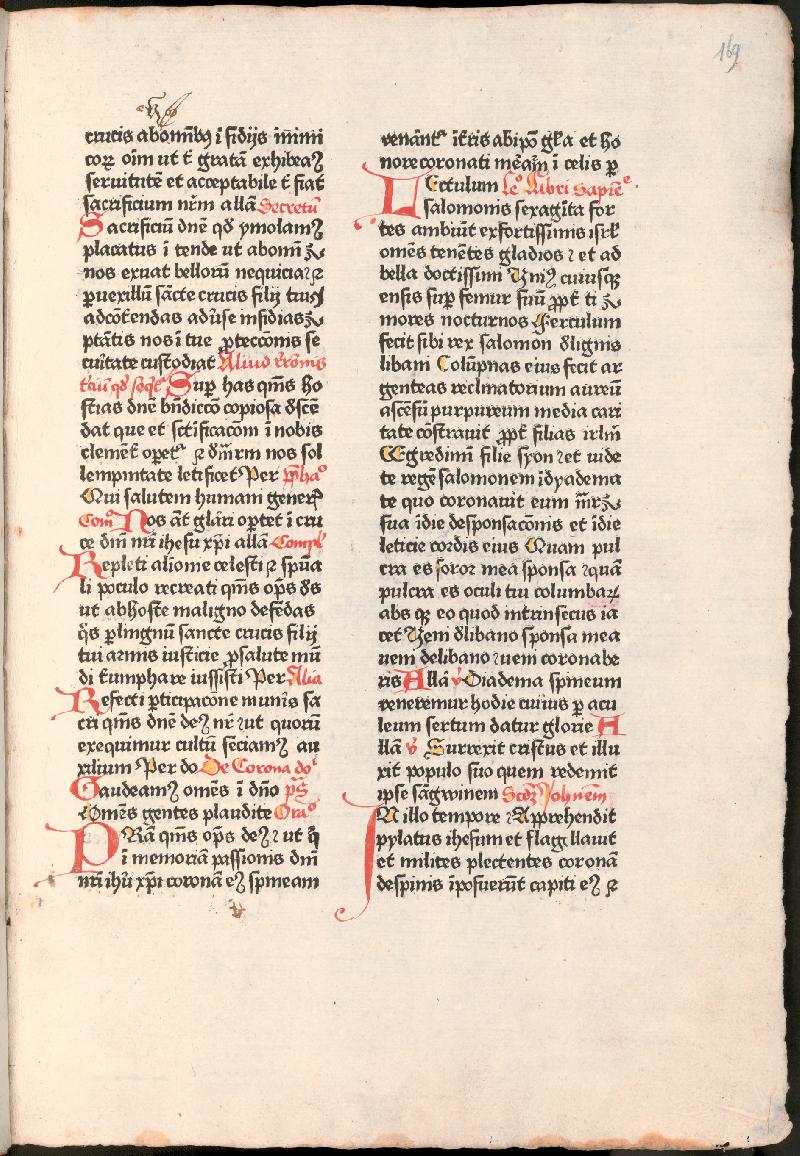 169
crucis abomībꝯ ī sidijs inimi
coꝝ oīm ut t̄ gratā exhibeaꝫ
seruitutē et acceptabile t̄ fiat
sacrificium nr̄m allā Secretū
Sacrificiū dn̄e qd̓ ymolamꝰ
placatus ītende ut abomī ꝫ
nos exuat bellorū nequicia ꝛ
ꝑ uexillū sācte crucis filij tui
ad cōt̓endas ad ūse insidias
ptātis nos ī tue ꝓteccōnis se
curitate custodiat Aliud
Sup has qm̄s ho
stias dn̄e bn̄diccō copiosa d̓scē
dat que et sct̄ificacōm ī nobis
clement̓ opet̓ ꝛ nos sol
lempnitate letificet Per
Qui salutem humani gener̓
Com̄ Nos āt glāri oꝑtet ī cru
ce dm̄ nr̄i ihesu xp̄i allā Compl̓
Repleti aliome celesti ꝛ sp̄ua
li poculo recreati qm̄s op̄s d̓s
ut ab hoste maligno defēdas
q̄s ꝑ lingnū sancte crucis filij
tui armis iusticie ꝓ salute mū
di t̓umphare iussisti Per Alia
Refecti ꝑticipacone mun̓is sa
cri qm̄s dn̄e deꝰ nr̄ ꝛ ut quorū
exequimur cultū seciamꝰ au
xilium Per do De Corona do̓
Gaudeamꝰ om̄es ī dn̄o ps̄
Om̄es gentes plaudite Oraᵒ
PRā qm̄s op̄s deꝰ ꝛ ut q̄
ī memoriā passionis dn̄i
nr̄i ihū xp̄i coronā eꝰ spineam
ven̓ant̓ ī t̓ris ab ip̄o gl̓a et ho
nore coronati ī celis ꝑ
LEctulum Lcᵒ Libri Sapiēᵉ
salomonis sexagīta for
tes ambiūt ex fortissimis isrl̓
omēs tenētes gladios ꝛ et ad
bella doctissimi Vniꝰ cuiusqꝫ
ensis suꝑ femur suū ꝓpt̓ ti
mores nocturnos Ferculum
fecit sibi rex salomon d̓ lignis
libani Colūpnas eius fecit ar
genteas reclinatorium aureū
ascēsū purpureum media cari
tate cōstrauit ꝓpt̓ filias irl̓m
Egredimī filie syon ꝛ et uide
te regē salomonem ī dyadema
te quo coronauit eum mr̄
sua ī die desponsacōnis et ī die
leticie cordis eius Quam pul
cra es soror mea sponsa ꝛ quā
pulcra es oculi tui columbaꝝ
absqꝫ eo quod intrinsecus la
tet Veni d̓ libano sponsa mea
ueni de libano ꝛ ueni coronabe
ris Allā v̓ Diadema spineum
veneremur hodie cuius ꝑ acu
leum sertum datur glorie A
llā v̓ Surrexit cristus et illu
xit populo suo quem redemit
ipse sāgwinem Scdꝫ Johnem
IN illo tempore Apprehendit
pylatus ihesum et flagllauit
et milites plectentes coronā
de spinis īposuerūt capiti eꝰ ꝛ